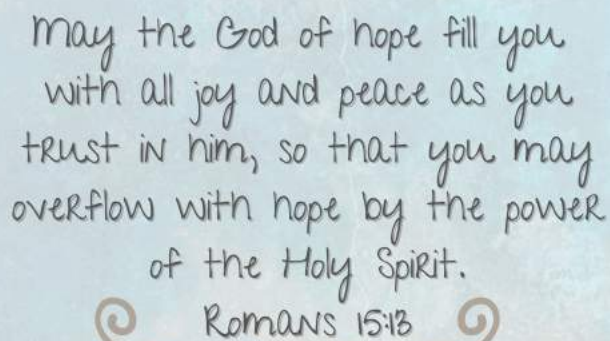 may the God of hope fill you
with all joy and peace as you
trust in him, so that you may
overflow with hope by the power
of the Holy Spirit.
Romans 15:13